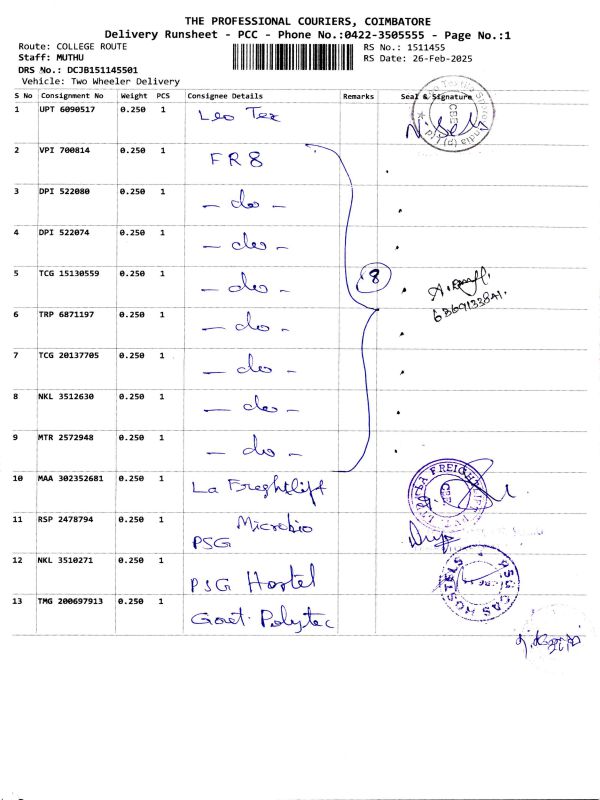 THE PROFESSIONAL COURIERS, COIMBATORE
Delivery Runsheet - PCC - Phone No.:0422-3505555 - Page No.:1
Route: COLLEGE ROUTE RS No.: 1511455
Staff: MUTHU RS Date: 26-Feb-2025
DRS No.: DCJB151145501
Vehicle: Two Wheeler Delivery
S No Consignment No Weight PCS Consignee Details Remarks Seal & Signature
1 UPT 6090517 0.250 1 Leo Tex
2 VPI 700814 0.250 1 FR8
3 DPI 522080 0.250 1 - do -
4 DPI 522074 0.250 1 - do -
5 TCG 15130559 0.250 1 - do - 8
6 TRP 6871197 0.250 1 - do -
7 TCG 20137705 0.250 1 - do -
8 NKL 3512630 0.250 1 - do -
9 MTR 2572948 0.250 1 - do -
10 MAA 302352681 0.250 1 La Freghtlift
11 RSP 2478794 0.250 1 Microbio
PSG
12 NKL 3510271 0.250 1 PSG Hostel
PSG CAS HOSTELS
13 TMG 200697913 0.250 1 Govt. Polytec